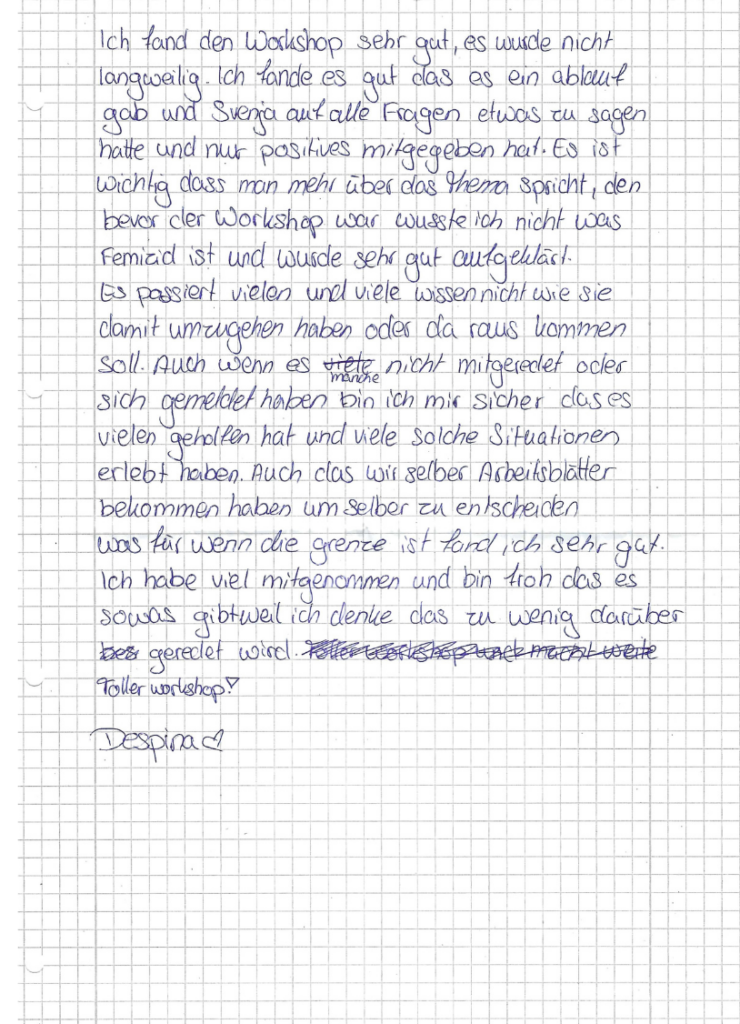 Ich fand den Workshop sehr gut, es wurde nicht
langweilig. Ich fande es gut das es ein ablauf
gab und Svenja auf alle Fragen etwas zu sagen
hatte und nur positives mitgegeben hat. Es ist
wichtig dass man mehr über das thema spricht, den
bevor der Workshop war wusste ich nicht was
Femizid ist und wurde sehr gut aufgeklärt.
Es passiert vielen und viele wissen nicht wie sie
damit umzugehen haben oder da raus kommen
soll. Auch wenn es viele manche nicht mitgeredet oder
sich gemeldet haben bin ich mir sicher das es
vielen geholfen hat und viele solche Situationen
erlebt haben. Auch das wir selber Arbeitsblätter
bekommen haben um selber zu entscheiden
was für wenn die grenze ist fand ich sehr gut.
Ich habe viel mitgenommen und bin froh das es
sowas gibt weil ich denke das zu wenig darüber
geredet wird.
Toller workshop!
Despina♡